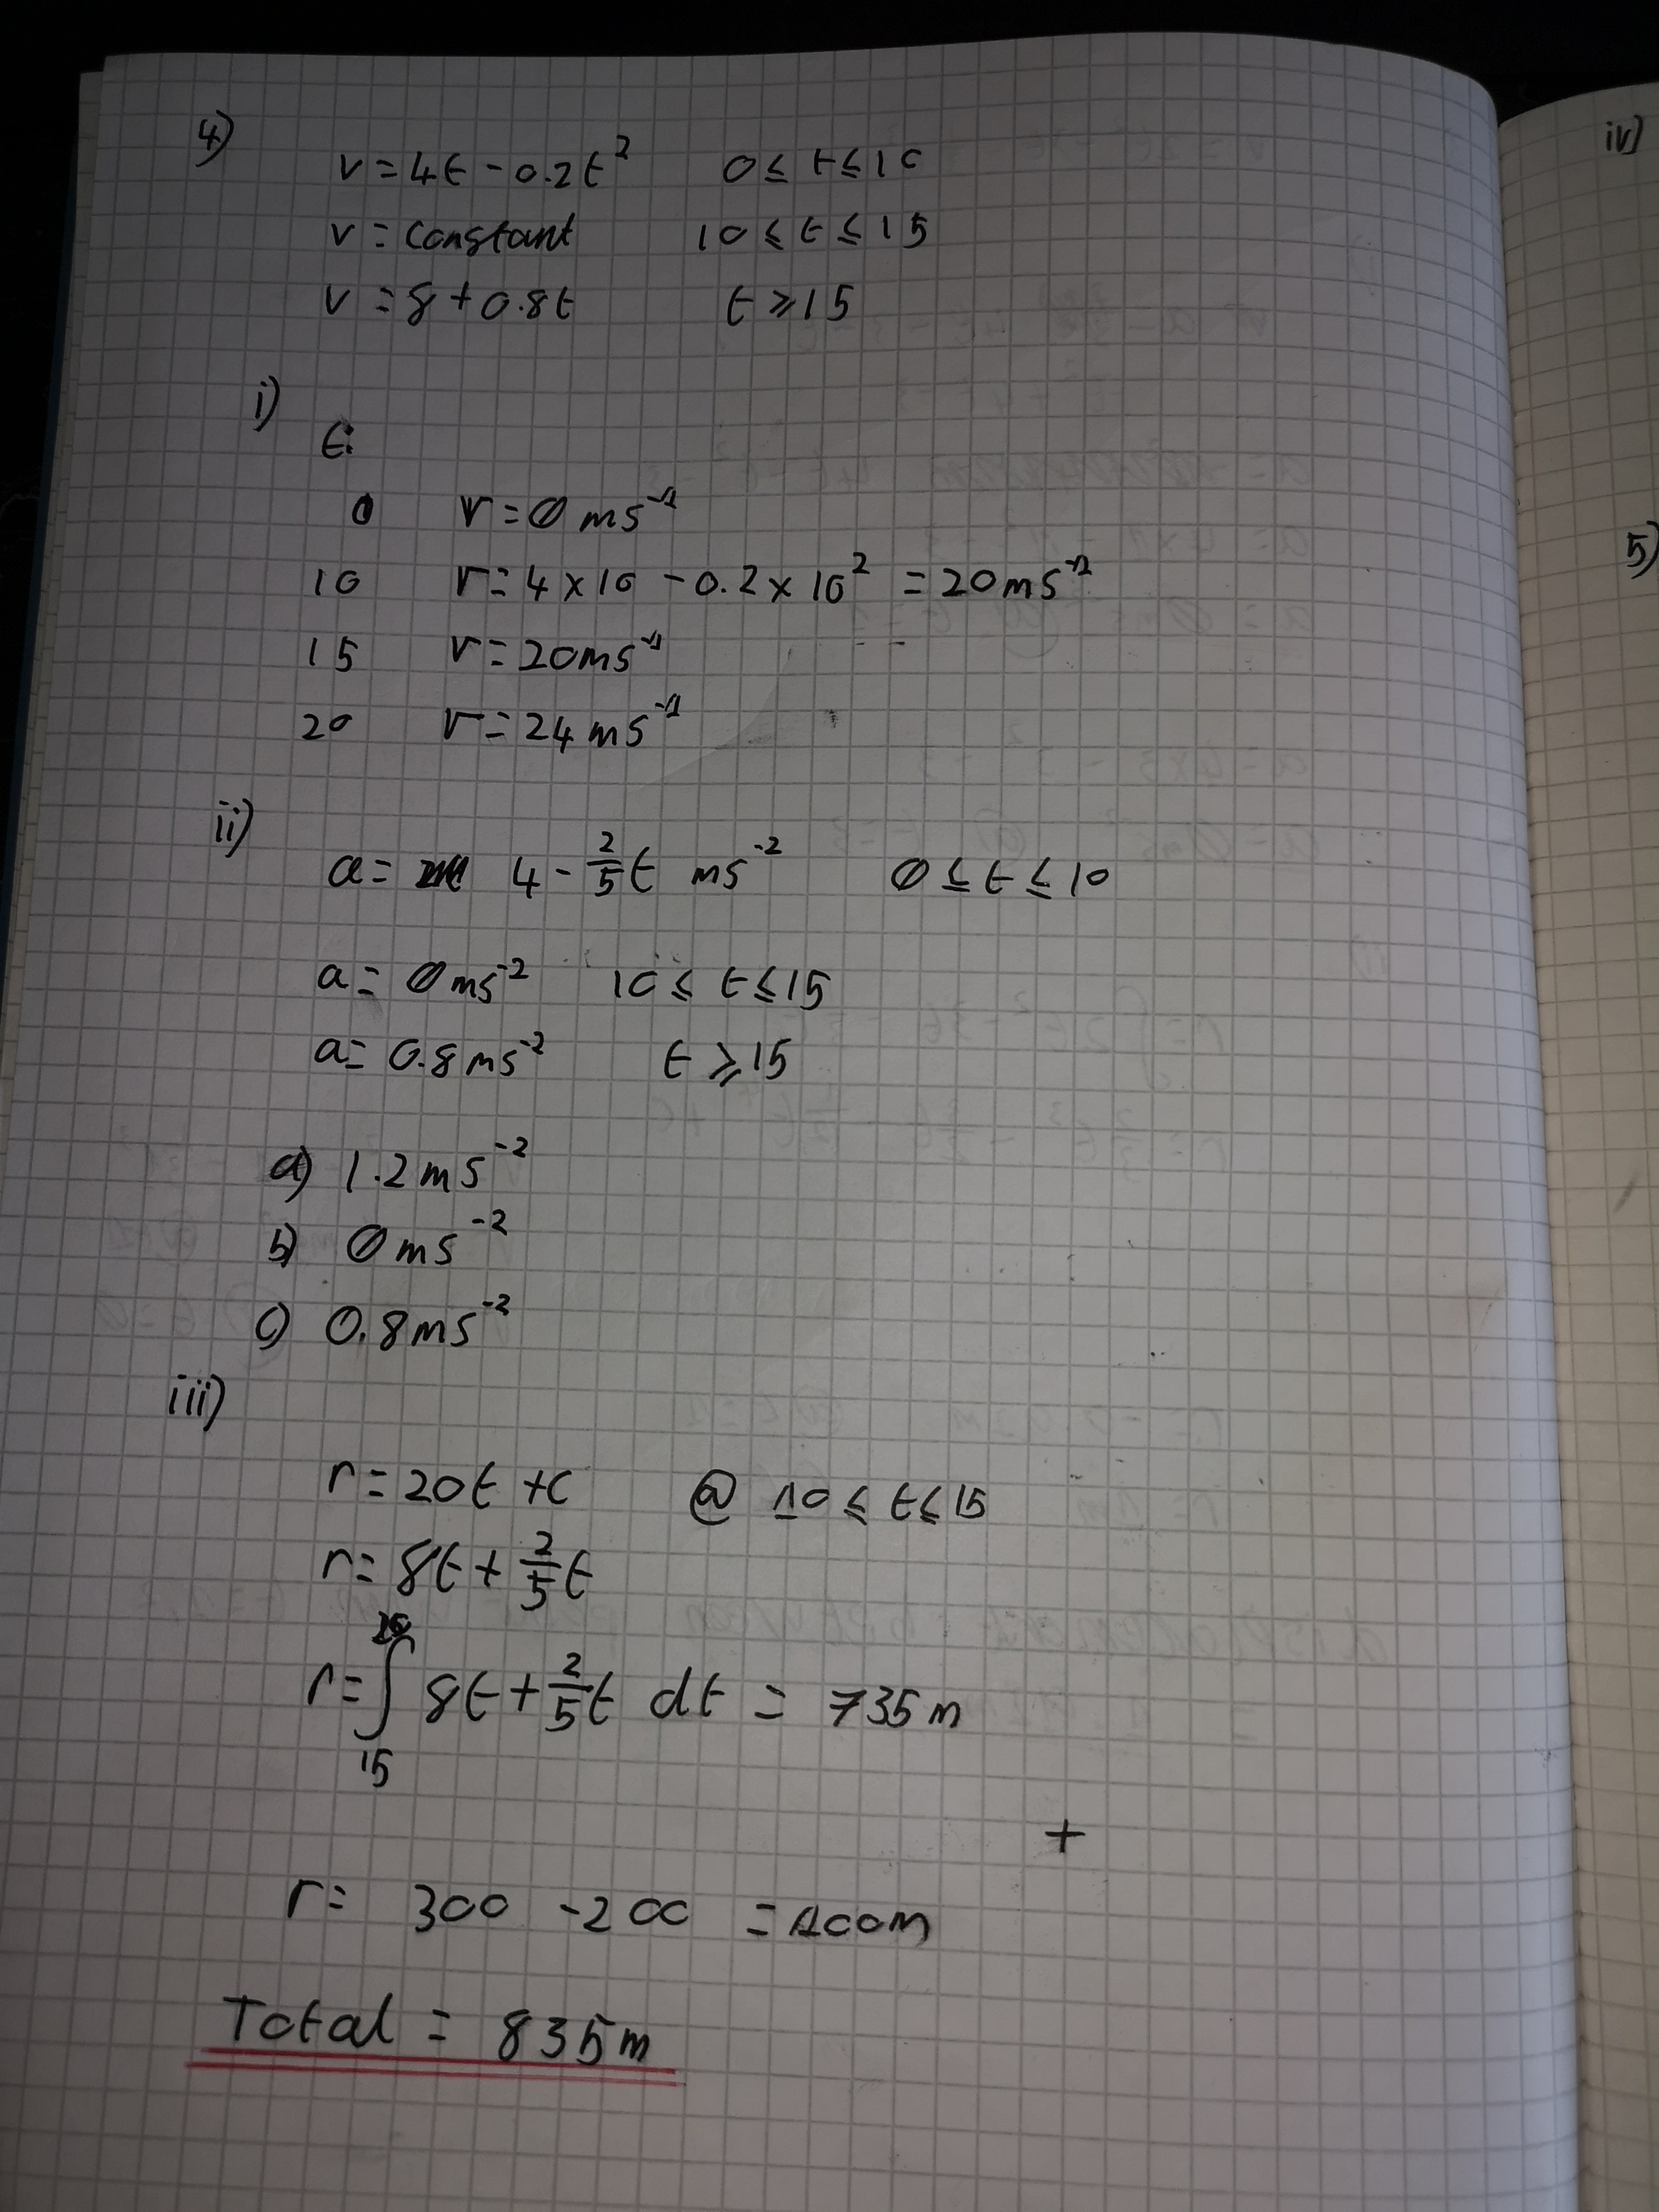 4)
v = 4t - 0.2t² 0 ≤ t ≤ 10
v = constant 10 ≤ t ≤ 15
v = 8 + 0.8t t ≥ 15
i)
t:
0 v = 0 ms⁻¹
10 v = 4 × 10 - 0.2 × 10² = 20 ms⁻¹
15 v = 20 ms⁻¹
20 v = 24 ms⁻¹
ii)
a = 4 - 2/5 t ms⁻² 0 ≤ t ≤ 10
a = 0 ms⁻² 10 ≤ t ≤ 15
a = 0.8 ms⁻² t ≥ 15
a) 1.2 ms⁻²
b) 0 ms⁻²
c) 0.8 ms⁻²
iii)
r = 20t + c @ 10 ≤ t ≤ 15
r = 8t + 2/5 t
r = ∫₁₅²⁰ 8t + 2/5 t dt = 735 m
+
r = 300 - 200 = 100m
Total = 835m
iv)
5)